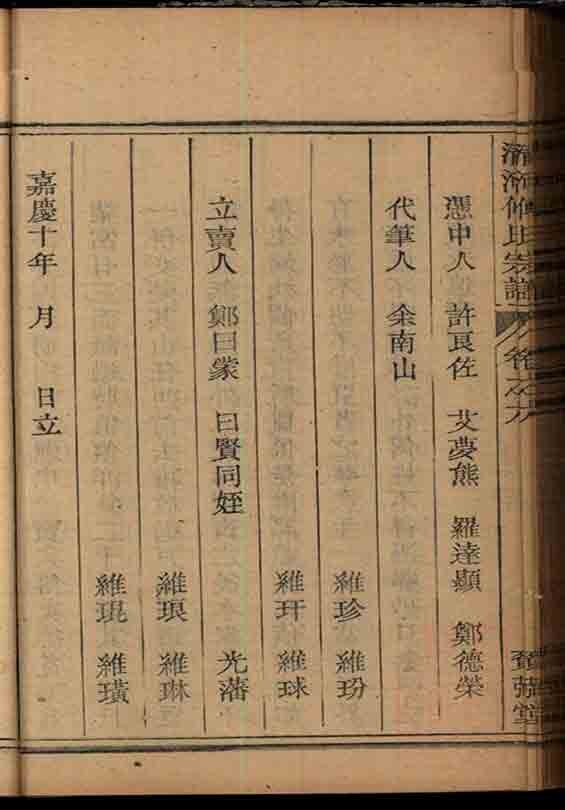 憑中人 許良佐 艾夢熊 羅達顯 鄭德榮
代筆人 余南山
維珍 維玢
維玕 維球
立賣人 鄭曰蒙 曰賢同姪 光藩
維琅 維琳
維琨 維璜
嘉慶十年 月 日立